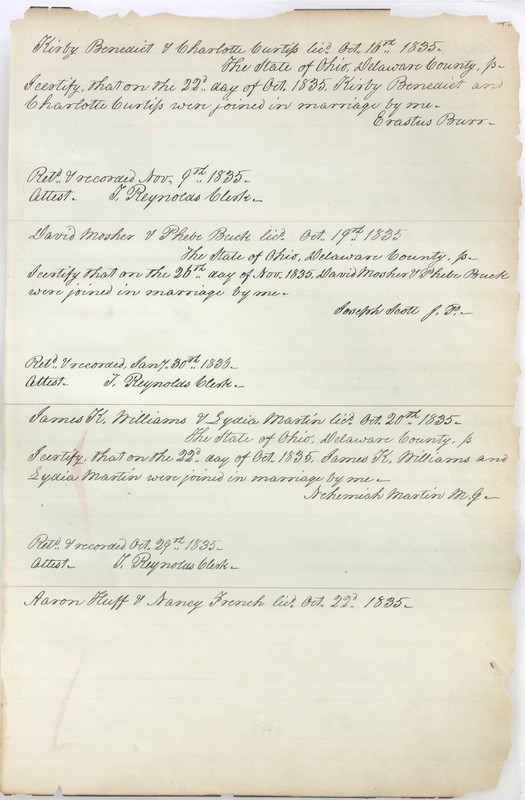 Kirby Benedict & Charlotte Curtiss licd. Oct. 16th 1835.
The State of Ohio, Delaware County, ss.
I certify, that on the 22d. day of Oct. 1835, Kirby Benedict and
Charlotte Curtiss were joined in marriage by me.
Erastus Burr.
Retd. & recorded Nov. 9th 1835.
Attest. T. Reynolds Clerk.
David Mosher & Phebe Buck licd. Oct. 19th 1835
The State of Ohio, Delaware County, ss.
I certify that on the 26th day of Nov. 1835, David Mosher & Phebe Buck
were joined in marriage by me.
Joseph Scott J. P.
Retd. & recorded, Jany. 30th 1836.
Attest. T. Reynolds Clerk.
James K. Williams & Lydia Martin licd. Oct. 20th 1835.
The State of Ohio, Delaware County, ss
I certify, that on the 22d. day of Oct. 1835, James K. Williams and
Lydia Martin were joined in marriage by me.
Nehemiah Martin M. G.
Retd. & recorded Oct. 29th 1835.
Attest. T. Reynolds Clerk.
Aaron Huff & Nancy French licd. Oct. 22d. 1835.